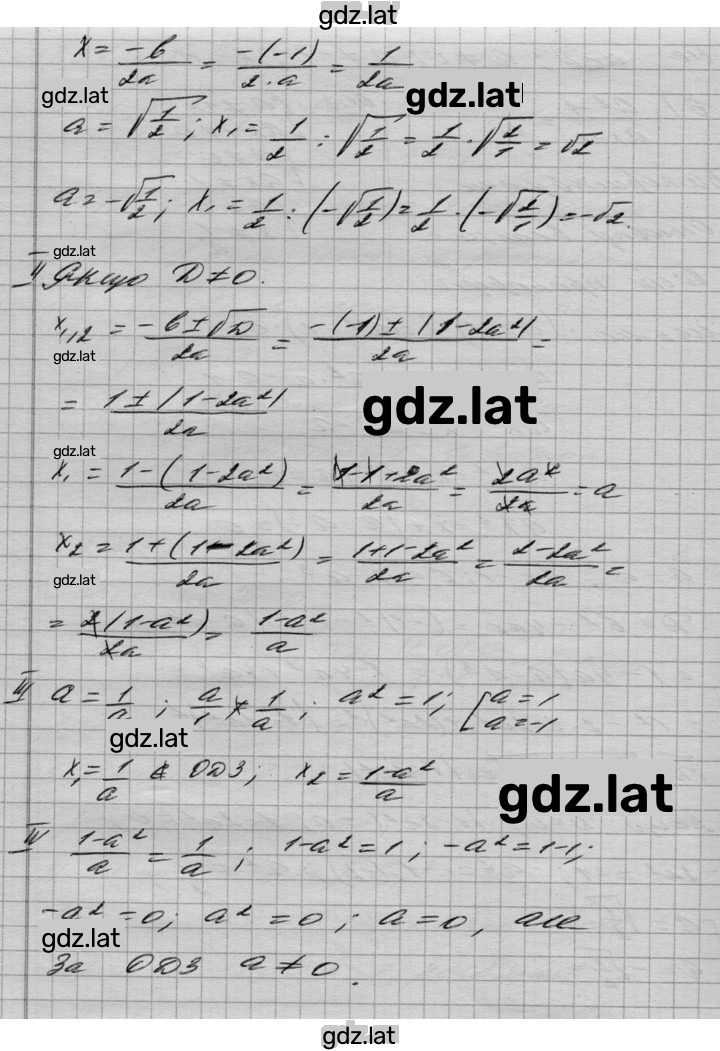 gdz.lat
x = -b/2a = -(-1)/2·a = 1/2a
gdz.lat gdz.lat
a = √(1/2); x₁ = 1/2 : √(1/2) = 1/2 · √(2/1) = √2
a = -√(1/2); x₁ = 1/2 : (-√(1/2)) = 1/2 · (-√(2/1)) = -√2.
gdz.lat
II Якщо D ≠ 0.
x₁,₂ = (-b ± √D)/2a = (-(-1) ± |1-2a²|)/2a =
gdz.lat
= (1 ± |1-2a²|)/2a
gdz.lat
gdz.lat
x₁ = (1-(1-2a²))/2a = (1-1+2a²)/2a = 2a²/2a = a
x₂ = (1+(1-2a²))/2a = (1+1-2a²)/2a = (2-2a²)/2a =
gdz.lat
= 2(1-a²)/2a = (1-a²)/a
III a = 1/a; a/1 × 1/a; a² = 1; [a = 1 a = -1
gdz.lat
x₁ = 1/a ∉ ОДЗ; x₂ = (1-a²)/a
gdz.lat
IV (1-a²)/a = 1/a; 1-a² = 1; -a² = 1-1;
-a² = 0; a² = 0; a = 0, але
gdz.lat
За ОДЗ a ≠ 0.
gdz.lat